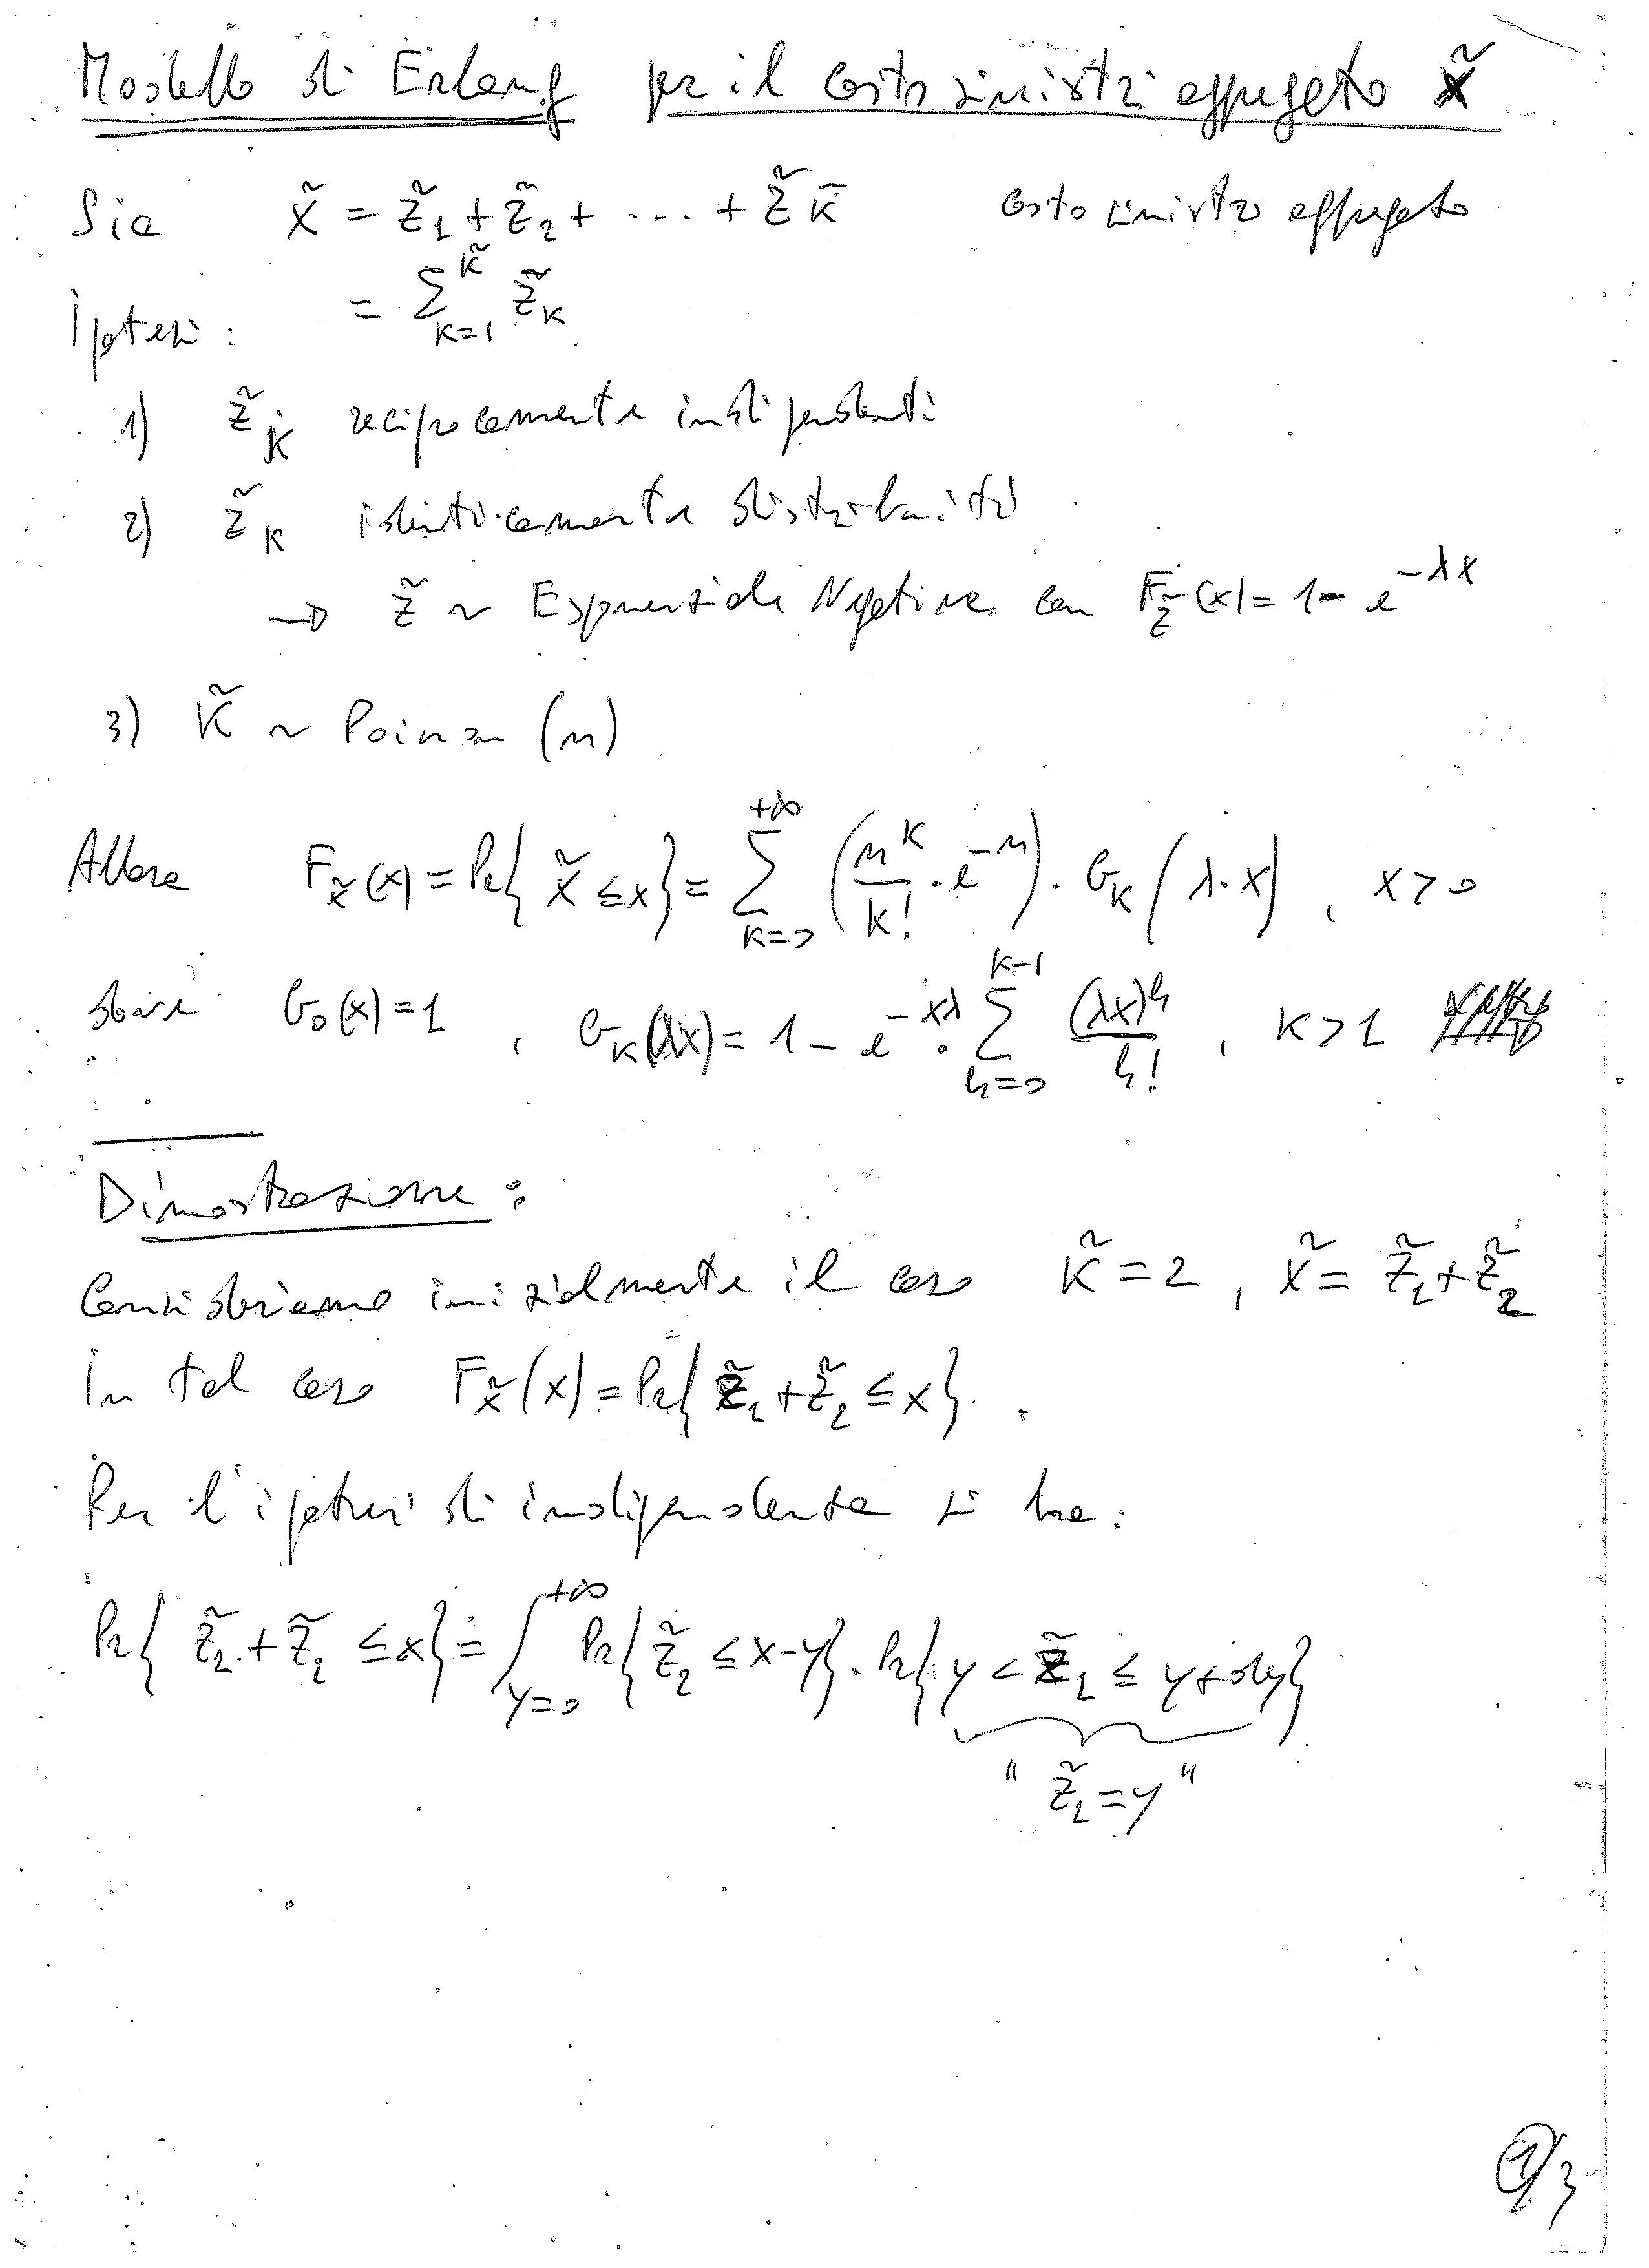 Modello di Erlang per il costo sinistri aggregato X̃
Sia X̃ = Z̃₁ + Z̃₂ + .... + Z̃ K̃ costo sinistri aggregato
= Σ_{K=1}^{K̃} Z̃_K
Ipotesi :
1) Z̃_K reciprocamente indipendenti
2) Z̃_K identicamente distribuiti
→ Z̃ ~ Esponenziale Negativa con F_Z̃(x) = 1 - e^{-λx}
3) K̃ ~ Poisson (n)
Allora F_X̃(x) = Pr{ X̃ ≤ x } = Σ_{K=0}^{+∞} (n^K/K! · e^{-n}) · G_K (λ·x) , x > 0
dove G₀(x) = 1 , G_K(λx) = 1 - e^{-xλ} · Σ_{h=0}^{K-1} (λx)^h/h! , K > 1
Dimostrazione :
Consideriamo inizialmente il caso K̃ = 2 , X̃ = Z̃₁ + Z̃₂
In tal caso F_X̃(x) = Pr{ Z̃₁ + Z̃₂ ≤ x } .
Per l'ipotesi di indipendenza si ha :
Pr{ Z̃₁ + Z̃₂ ≤ x } = ∫_{y=0}^{+∞} Pr{ Z̃₂ ≤ x-y } · Pr{ y < Z̃₁ ≤ y+dy }
" Z̃₁ = y "
1/3